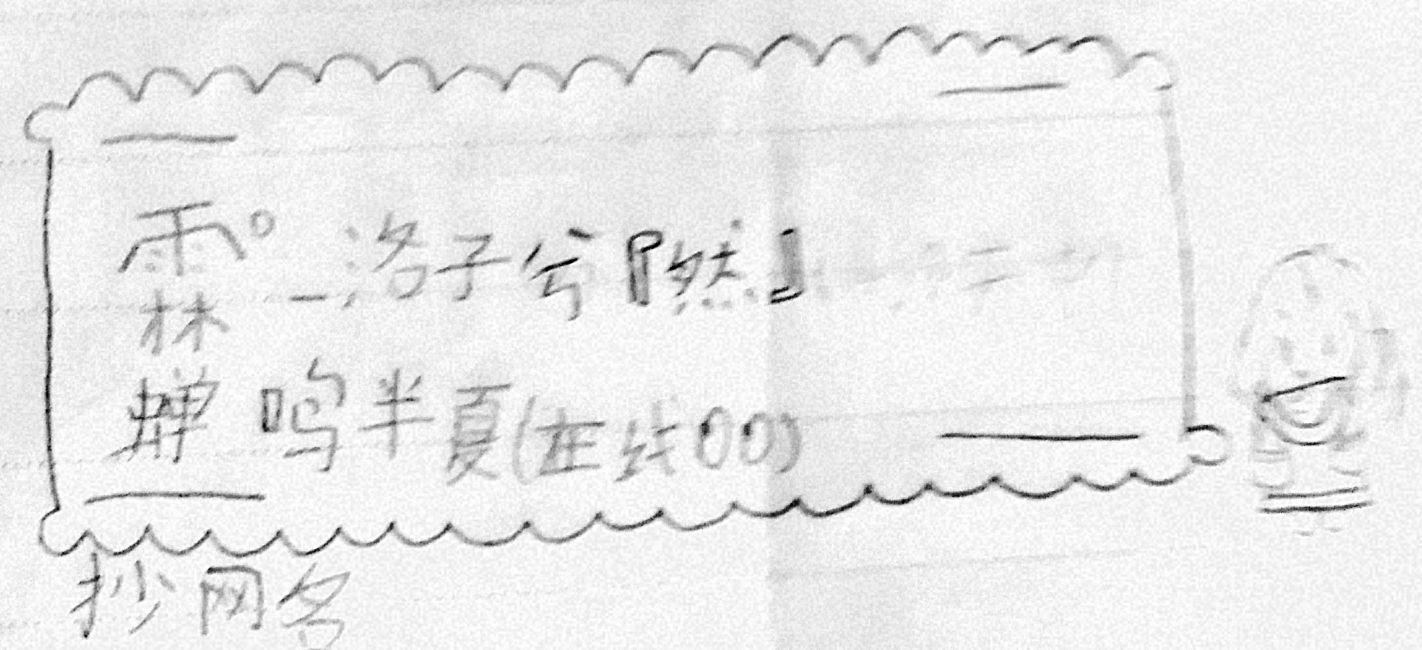 霖°_:洛子兮『然』
蝉鸣半夏(在线00)
抄网名